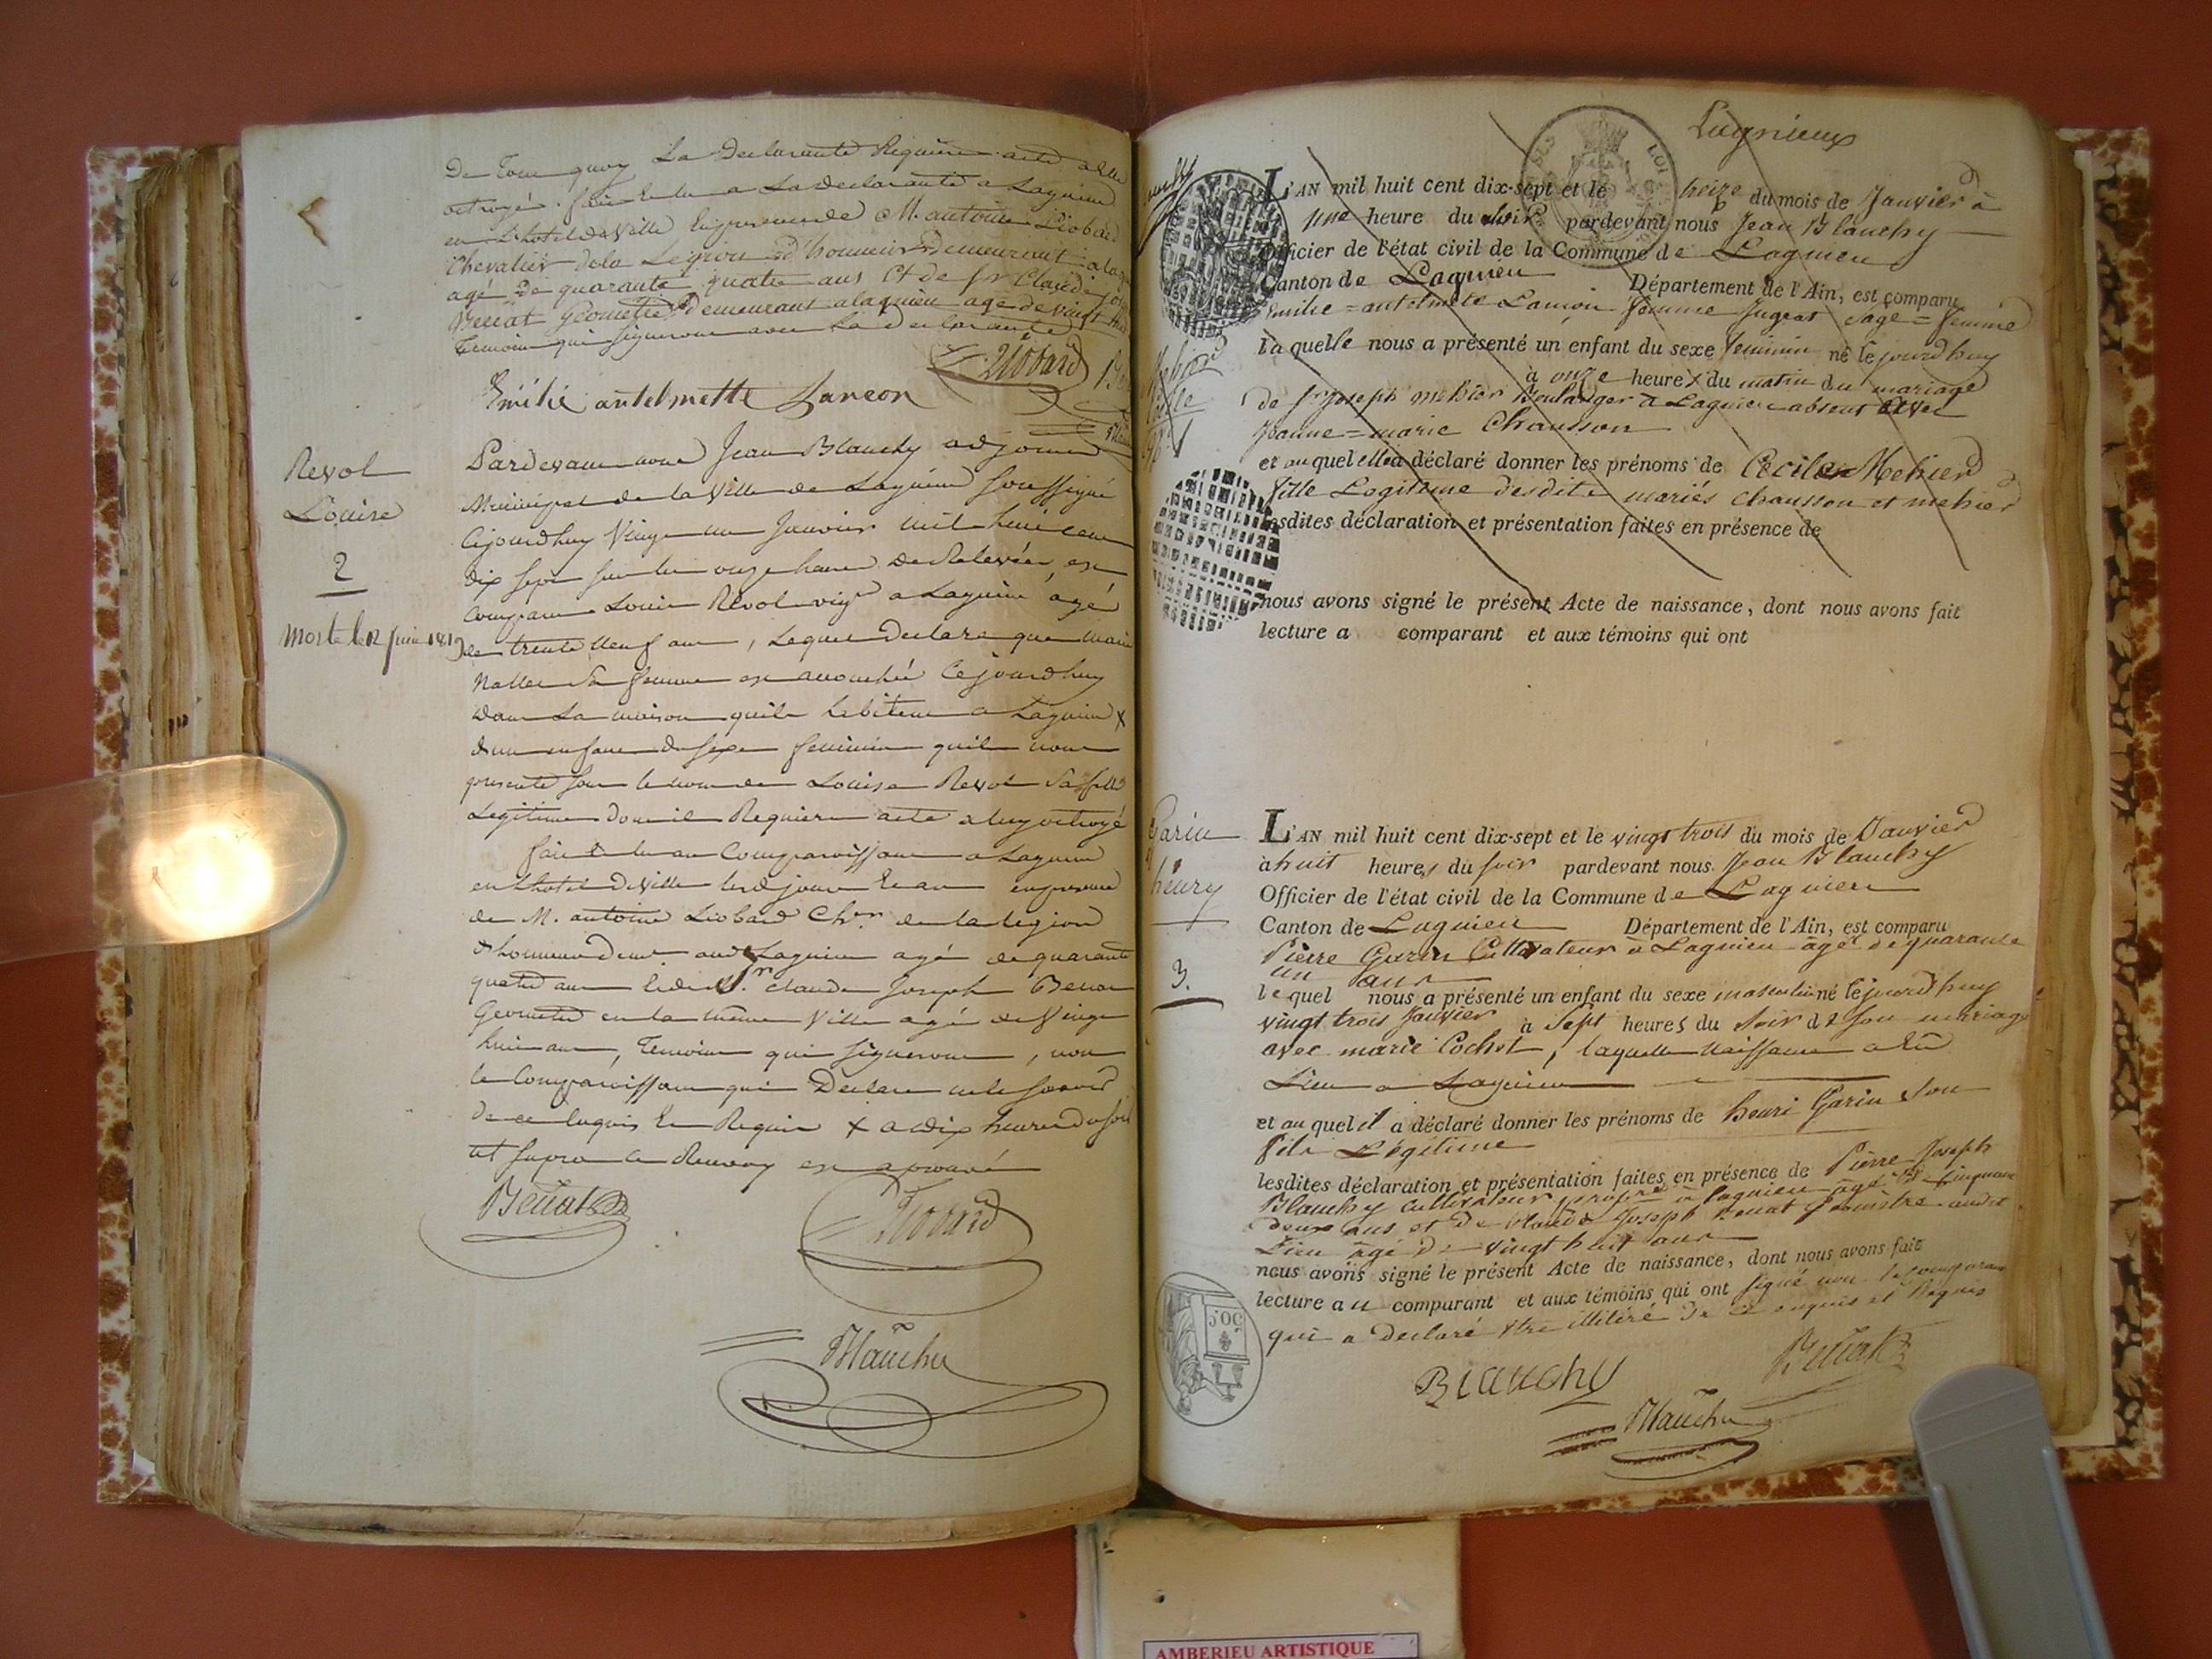 De Tout quoy La Declarante Requière acte a elle
octroyé. fait & lu a La declarante a Lagnieu
en L'hotel de Ville En presence de M. antoine Liobard
Chevalier de la Légion d'honneur Demeurant a
agé de quarante quatre ans Et de Sr Claude
Benat Géomètre Demeurant a Lagnieu agé de vingt
Temoins qui signeront avec La declarante
Liobard
Emélie antelmette Lancon
Revol
Louise
2
Morte le 12 Juin 1819
Pardevant nous Jean Blanchy adjoint
Municipal de la Ville de Lagnieu soussigné
Cejourdhuy Vingt un Janvier mil huit cent
dix sept sur les onze heures De Relevée, est
comparu Louis Revol vigr a Lagnieu agé
de trente neuf ans, Lequel Declare que Marie
Nallet Sa femme est accouchée Cejourdhuy
dans La maison quils habitent a Lagnieu X
d'un enfant du sexe feminin quil nous
presente sous le nom de Louise Revol Sa fille
Legitime dont il Requiert acte a luy octroyé
fait & lu au Comparoissant a Lagnieu
en L'hotel de Ville lesd jour & an en presence
de M. antoine Liobard Chr. de la legion
d'honneur demt aud Lagnieu agé de quarante
quatre ans & de Sr. Claude Joseph Benat
Geometre en la même Ville agé de Vingt
huit ans, Temoins qui signeront, non
le Comparoissant qui Declare ne le savoir
de ce enquis & Requis X a dix heures du soir
ut supra Le Renvoy est aprouvé
Benat
Liobard
Blanchy
Lagnieux
L'AN mil huit cent dix-sept et le treize du mois de Janvier à
une heure du soir pardevant nous Jean Blanchy
Officier de l'état civil de la Commune de Lagnieu
Canton de Lagnieu Département de l'Ain, est comparu
Emilie=antelmete Lancon femme Jugeat sage=femme
laquelle nous a présenté un enfant du sexe feminin né le jourdhuy
à onze heures du matin du mariage
de Sr Joseph mehier Boulanger à Lagnieu absent avec
Jeanne=marie Chausson
et auquel elle a déclaré donner les prénoms de Cécile Mehier
fille Legitime desdits mariés chausson et mehier
lesdites déclaration et présentation faites en présence de
nous avons signé le présent Acte de naissance, dont nous avons fait
lecture a comparant et aux témoins qui ont
Garin
henry
3.
L'AN mil huit cent dix-sept et le vingt trois du mois de Janvier
à huit heures du soir pardevant nous Jean Blanchy
Officier de l'état civil de la Commune de Lagnieu
Canton de Lagnieu Département de l'Ain, est comparu
Pierre Garin Cultivateur à Lagnieu agé de quarante
un ans
lequel nous a présenté un enfant du sexe masculin né le jourdhuy
vingt trois Janvier à Sept heures du Soir de son mariage
avec marie Cochet, laquelle Naissance a eû
Lieu a Lagnieu
et auquel il a déclaré donner les prénoms de henri Garin son
fils Légitime
lesdites déclaration et présentation faites en présence de Pierre Joseph
Blanchy cultivateur propre à Lagnieu agé de cinquante
deux ans et de Claude Joseph Benat Géomètre audit
Lieu agé de vingt huit ans
nous avons signé le présent Acte de naissance, dont nous avons fait
lecture au comparant et aux témoins qui ont signé non le comparant
qui a declaré être illitéré de ce enquis et Requis
Blanchy
Benat
Blanchy
AMBERIEU ARTISTIQUE